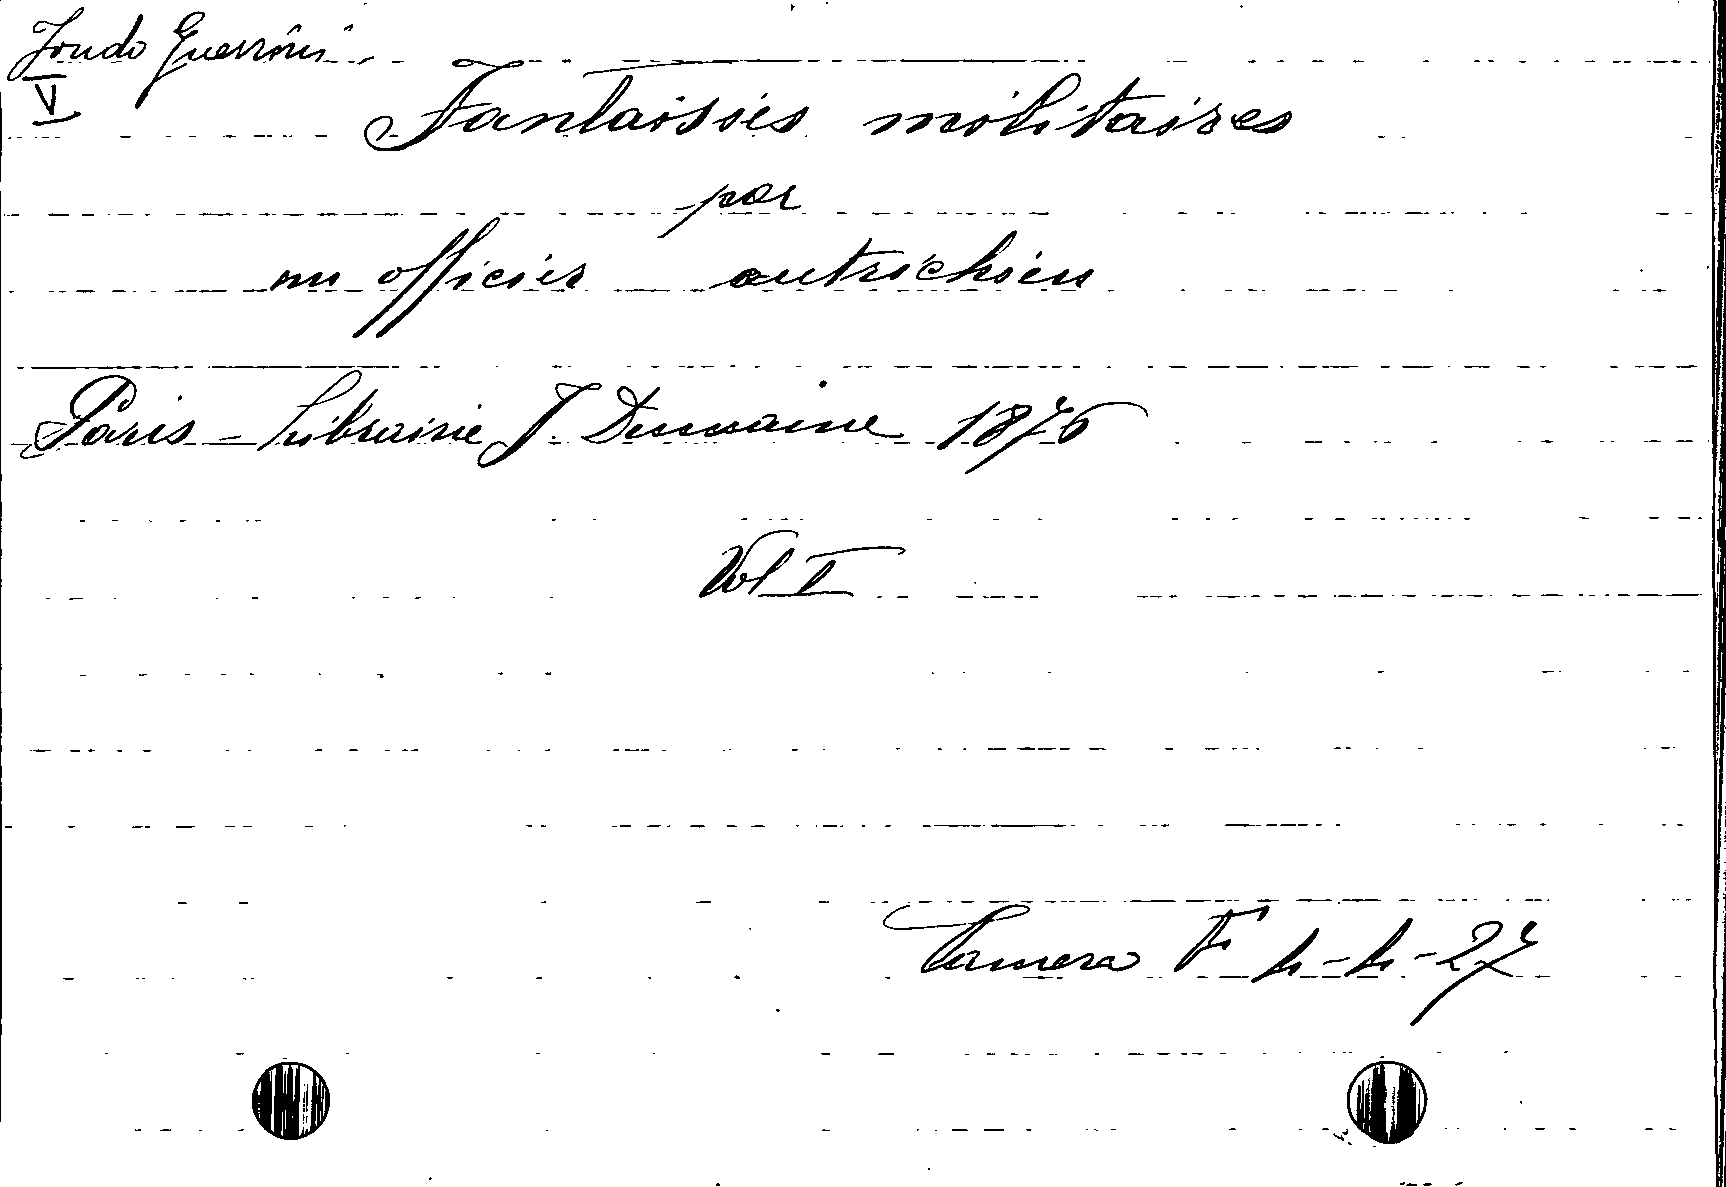 Fondo Guerrini
V
Fantaisies militaires
par
un officier autrichien
Paris - Librairie J. Dumaine 1876
Vol I
Camera F 4-4-27